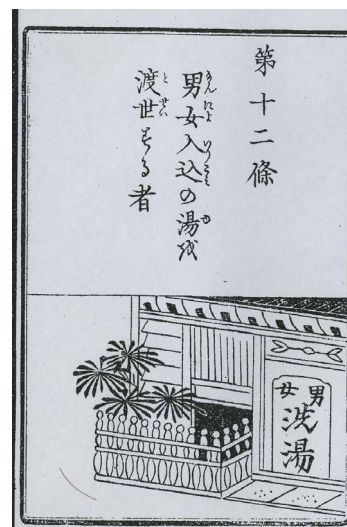 第十二條
男女入込の湯を
渡世する者
男女
洗湯